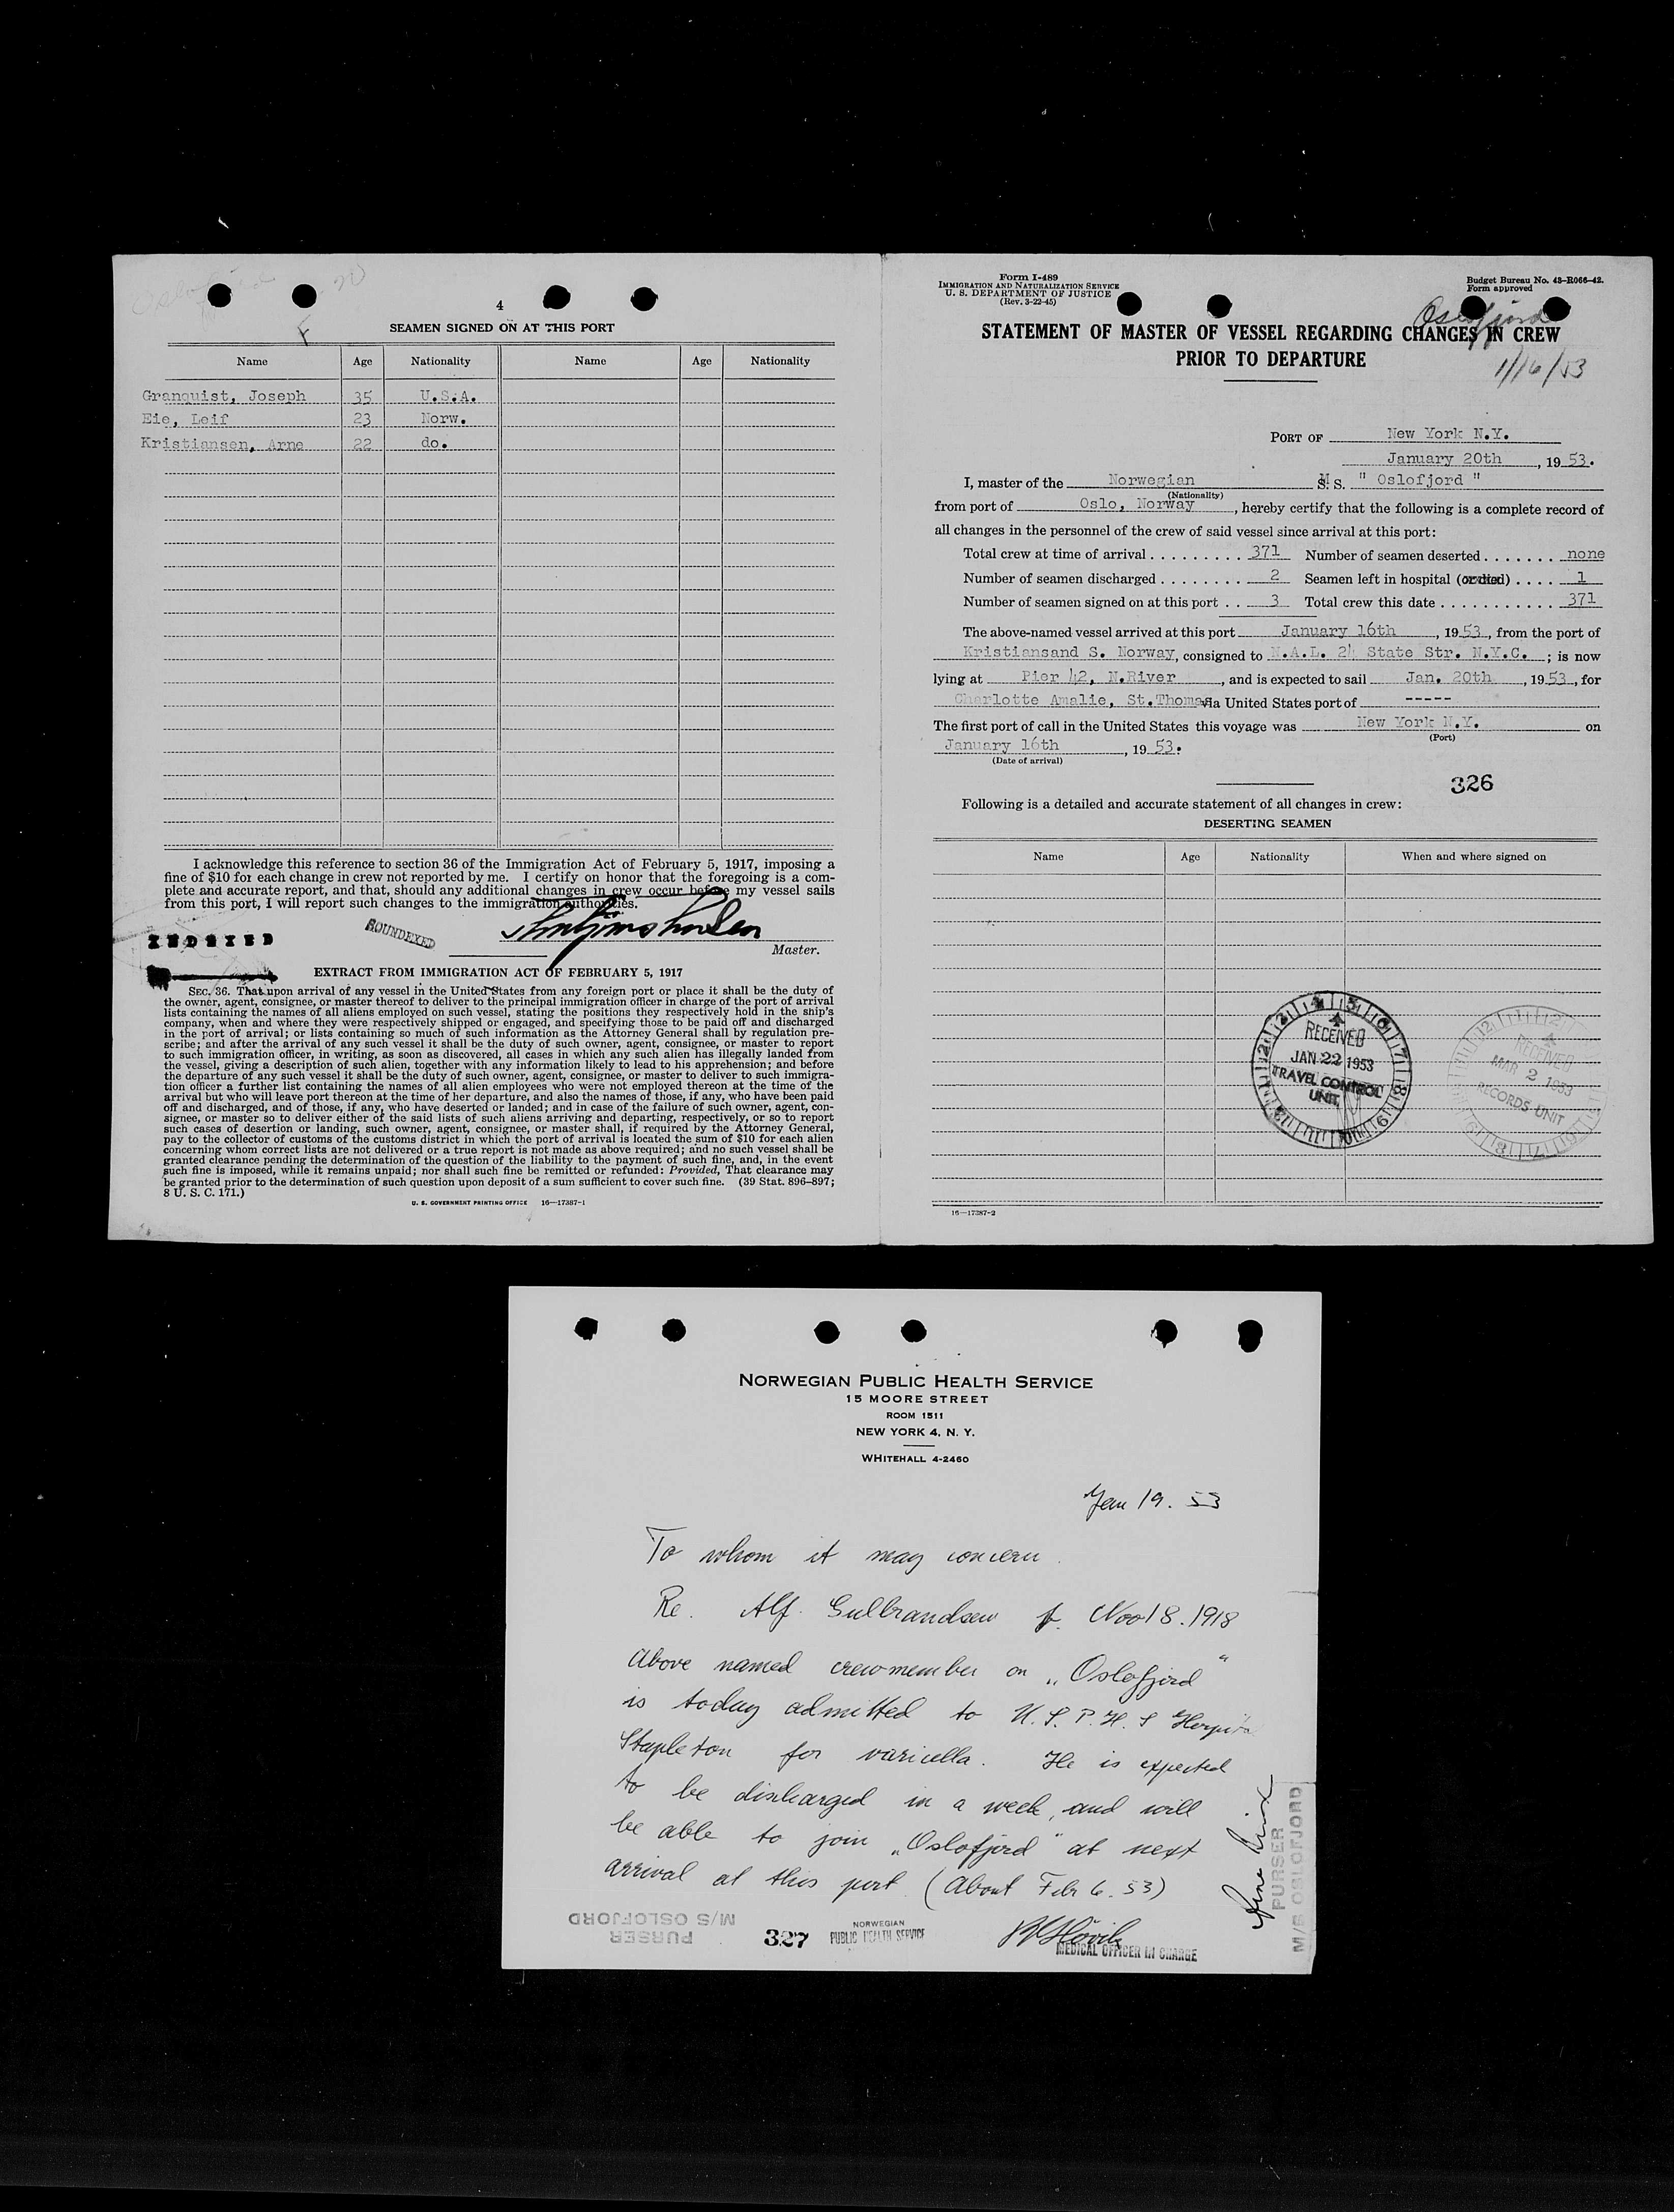 4
SEAMEN SIGNED ON AT THIS PORT
Name Age Nationality Name Age Nationality
Granquist, Joseph 35 U.S.A.
Eie, Leif 23 Norw.
Kristiansen, Arne 22 do.
I acknowledge this reference to section 36 of the Immigration Act of February 5, 1917, imposing a
fine of $10 for each change in crew not reported by me. I certify on honor that the foregoing is a com-
plete and accurate report, and that, should any additional changes in crew occur before my vessel sails
from this port, I will report such changes to the immigration authorities.
INDEXED
ROUNDEXED
Master.
EXTRACT FROM IMMIGRATION ACT OF FEBRUARY 5, 1917
SEC. 36. That upon arrival of any vessel in the United States from any foreign port or place it shall be the duty of
the owner, agent, consignee, or master thereof to deliver to the principal immigration officer in charge of the port of arrival
lists containing the names of all aliens employed on such vessel, stating the positions they respectively hold in the ship's
company, when and where they were respectively shipped or engaged, and specifying those to be paid off and discharged
in the port of arrival; or lists containing so much of such information as the Attorney General shall by regulation pre-
scribe; and after the arrival of any such vessel it shall be the duty of such owner, agent, consignee, or master to report
to such immigration officer, in writing, as soon as discovered, all cases in which any such alien has illegally landed from
the vessel, giving a description of such alien, together with any information likely to lead to his apprehension; and before
the departure of any such vessel it shall be the duty of such owner, agent, consignee, or master to deliver to such immigra-
tion officer a further list containing the names of all alien employees who were not employed thereon at the time of the
arrival but who will leave port thereon at the time of her departure, and also the names of those, if any, who have been paid
off and discharged, and of those, if any, who have deserted or landed; and in case of the failure of such owner, agent, con-
signee, or master so to deliver either of the said lists of such aliens arriving and departing, respectively, or so to report
such cases of desertion or landing, such owner, agent, consignee, or master shall, if required by the Attorney General,
pay to the collector of customs of the customs district in which the port of arrival is located the sum of $10 for each alien
concerning whom correct lists are not delivered or a true report is not made as above required; and no such vessel shall be
granted clearance pending the determination of the question of the liability to the payment of such fine, and, in the event
such fine is imposed, while it remains unpaid; nor shall such fine be remitted or refunded: Provided, That clearance may
be granted prior to the determination of such question upon deposit of a sum sufficient to cover such fine. (39 Stat. 896-897;
8 U. S. C. 171.)
U. S. GOVERNMENT PRINTING OFFICE 16—17387-1
Form I-489
IMMIGRATION AND NATURALIZATION SERVICE
U. S. DEPARTMENT OF JUSTICE
(Rev. 3-22-45)
Budget Bureau No. 43-R066-42.
Form approved
Oslofjord
STATEMENT OF MASTER OF VESSEL REGARDING CHANGES IN CREW
PRIOR TO DEPARTURE
1/16/53
PORT OF New York N.Y.
January 20th, 19 53.
I, master of the Norwegian M S. " Oslofjord "
(Nationality)
from port of Oslo, Norway, hereby certify that the following is a complete record of
all changes in the personnel of the crew of said vessel since arrival at this port:
Total crew at time of arrival . . . . . . . . . 371 Number of seamen deserted . . . . . . . none
Number of seamen discharged . . . . . . . . 2 Seamen left in hospital (or died) . . . . 1
Number of seamen signed on at this port . . 3 Total crew this date . . . . . . . . . . . . 371
The above-named vessel arrived at this port January 16th, 19 53, from the port of
Kristiansand S. Norway, consigned to N.A.L. 24 State Str. N.Y.C. ; is now
lying at Pier 42, N.River, and is expected to sail Jan. 20th, 19 53, for
Charlotte Amalie, St.Thomas via United States port of -----
The first port of call in the United States this voyage was New York N.Y. on
(Port)
January 16th, 19 53.
(Date of arrival)
326
Following is a detailed and accurate statement of all changes in crew:
DESERTING SEAMEN
Name Age Nationality When and where signed on
RECEIVED
JAN 22 1953
TRAVEL CONTROL
UNIT
RECEIVED
MAR 2 1953
RECORDS UNIT
16—17387-2
NORWEGIAN PUBLIC HEALTH SERVICE
15 MOORE STREET
ROOM 1511
NEW YORK 4, N. Y.
WHITEHALL 4-2460
Jan 19. 53
To whom it may concern.
Re. Alf Gulbrandsen f. Nov 18. 1918
Above named crewmember on „Oslofjord"
is today admitted to U.S.P.H.S Hospital
Stapleton for varicella. He is expected
to be discharged in a week, and will
be able to join „Oslofjord" at next
arrival at this port (About Febr 6. 53)
PURSER
M/S OSLOFJORD
327
NORWEGIAN
PUBLIC HEALTH SERVICE
MEDICAL OFFICER IN CHARGE
PURSER
M/S OSLOFJORD